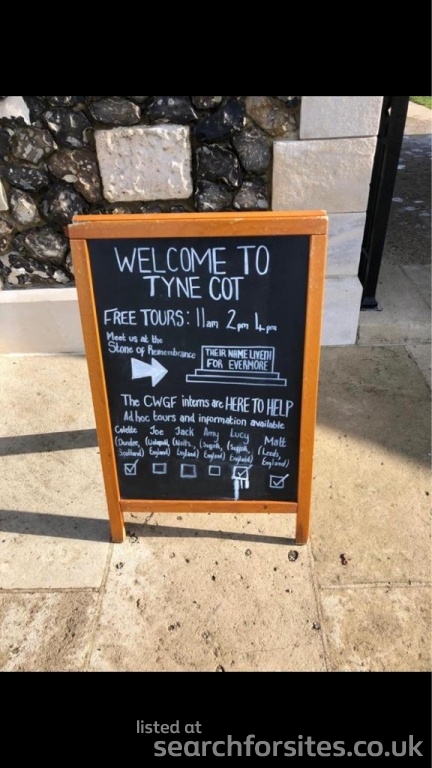 WELCOME TO
TYNE COT
FREE TOURS: 11am 2pm 4pm
Meet us at the
Stone of Remembrance
THEIR NAME LIVETH
FOR EVERMORE
The CWGF interns are HERE TO HELP
Ad hoc tours and information available
Colette Joe Jack Amy Lucy Matt
(Dundee, Scotland)
England)
England)
England)
England)
(Leeds, England)
listed at
searchforsites.co.uk